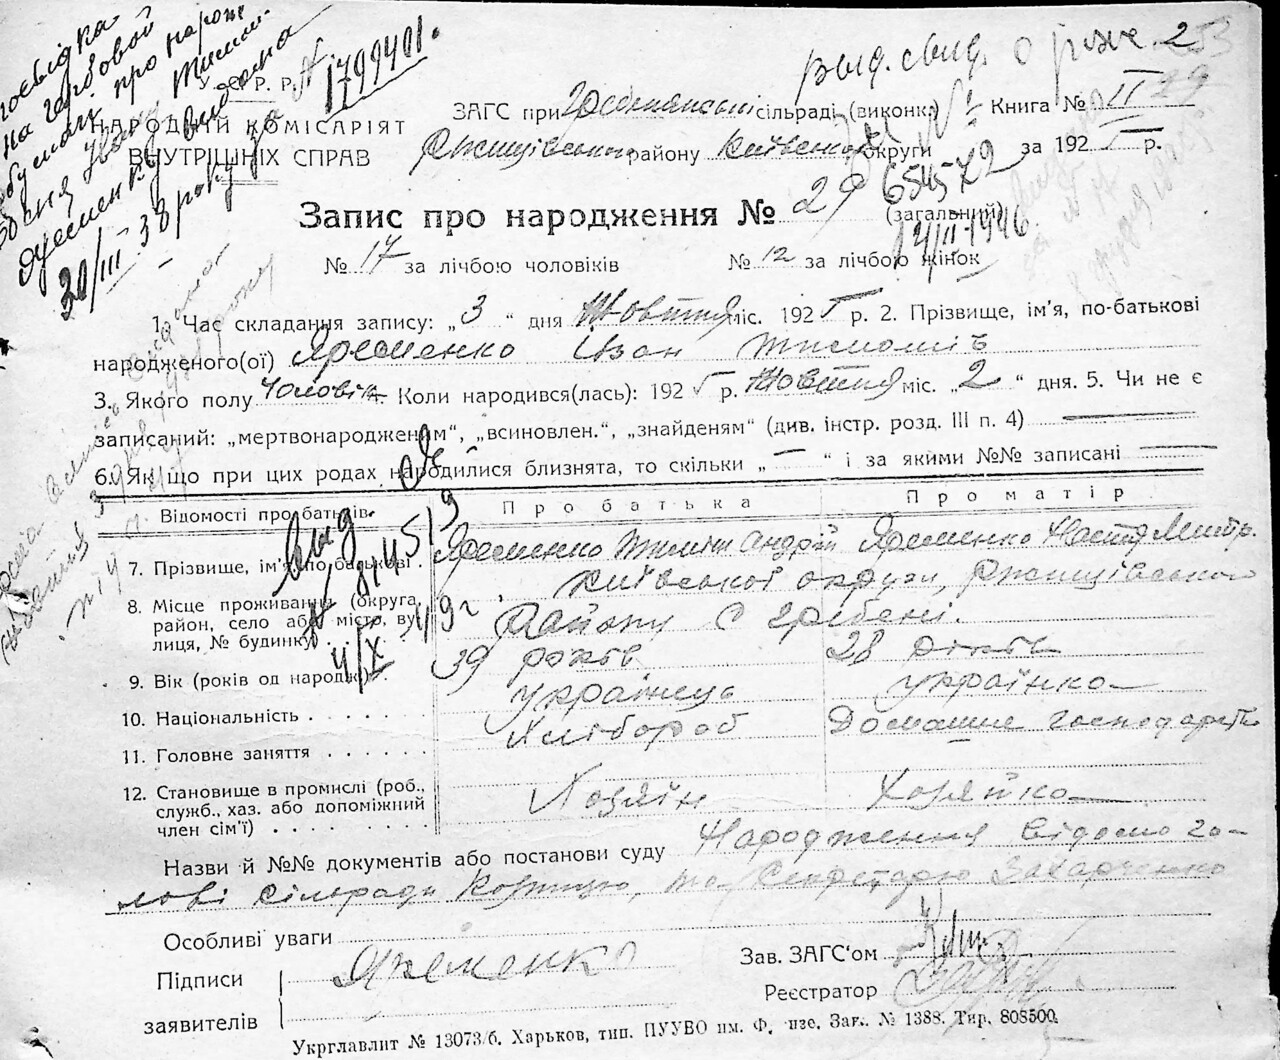 посвідка
на гербовой
про народж
Ивану Тимош.
Яременку видана
за № 1799401.
30/III-38 року
выд. свид. о рож. 253
У. С. Р. Р.
НАРОДНІЙ КОМІСАРІЯТ
ВНУТРІШНІХ СПРАВ
ЗАГС при Гребенянській сільраді (виконк.) Книга № II
Ржищівського району Київської округи за 1925 р.
654572
Запис про народження № 29 (загальний)
14/II-1946
№ 17 за лічбою чоловіків № 12 за лічбою жінок
1. Час складання запису: „3“ дня Жовтня міс. 1925 р. 2. Прізвище, ім'я, по-батькові
народженого(ої) Яременко Іван Тимошів
3. Якого полу Чоловіч. Коли народився(лась): 1925 р. Жовтня міс. „2“ дня. 5. Чи не є
записаний: „мертвонародженям“, „всиновлен.“, „знайденям“ (див. інстр. розд. III п. 4) —
6. Як що при цих родах народилися близнята, то скільки „—“ і за якими №№ записані —
Відомості про батьків. Про батька Про матір
выд
№ 814519
4/X 49г.
7. Прізвище, ім'я, по батькові. Яременко Тиміш Андрій Яременко Настя Митр.
8. Місце проживання (округа, Київської округи, Ржищівського
район, село або місто, ву- Району С Гребені.
лиця, № будинку)
9. Вік (років од народж.) 39 років 28 років
10. Національність українець українка
11. Головне заняття Хлібороб Домашнє господарств
12. Становище в промислі (роб., Хозяїн Хозяйка
служб., хаз. або допоміжний
член сім'ї)
Назви й №№ документів або постанови суду Народження відомо го-
лові сільради та Секретарю Захарченко
Особливі уваги
Підписи Яременко Зав. ЗАГС'ом
заявителів Реєстратор
Укрглавлит № 13073/б. Харьков, тип. ПУУВО им. Ф. Зак. № 1388. Тир. 808500.